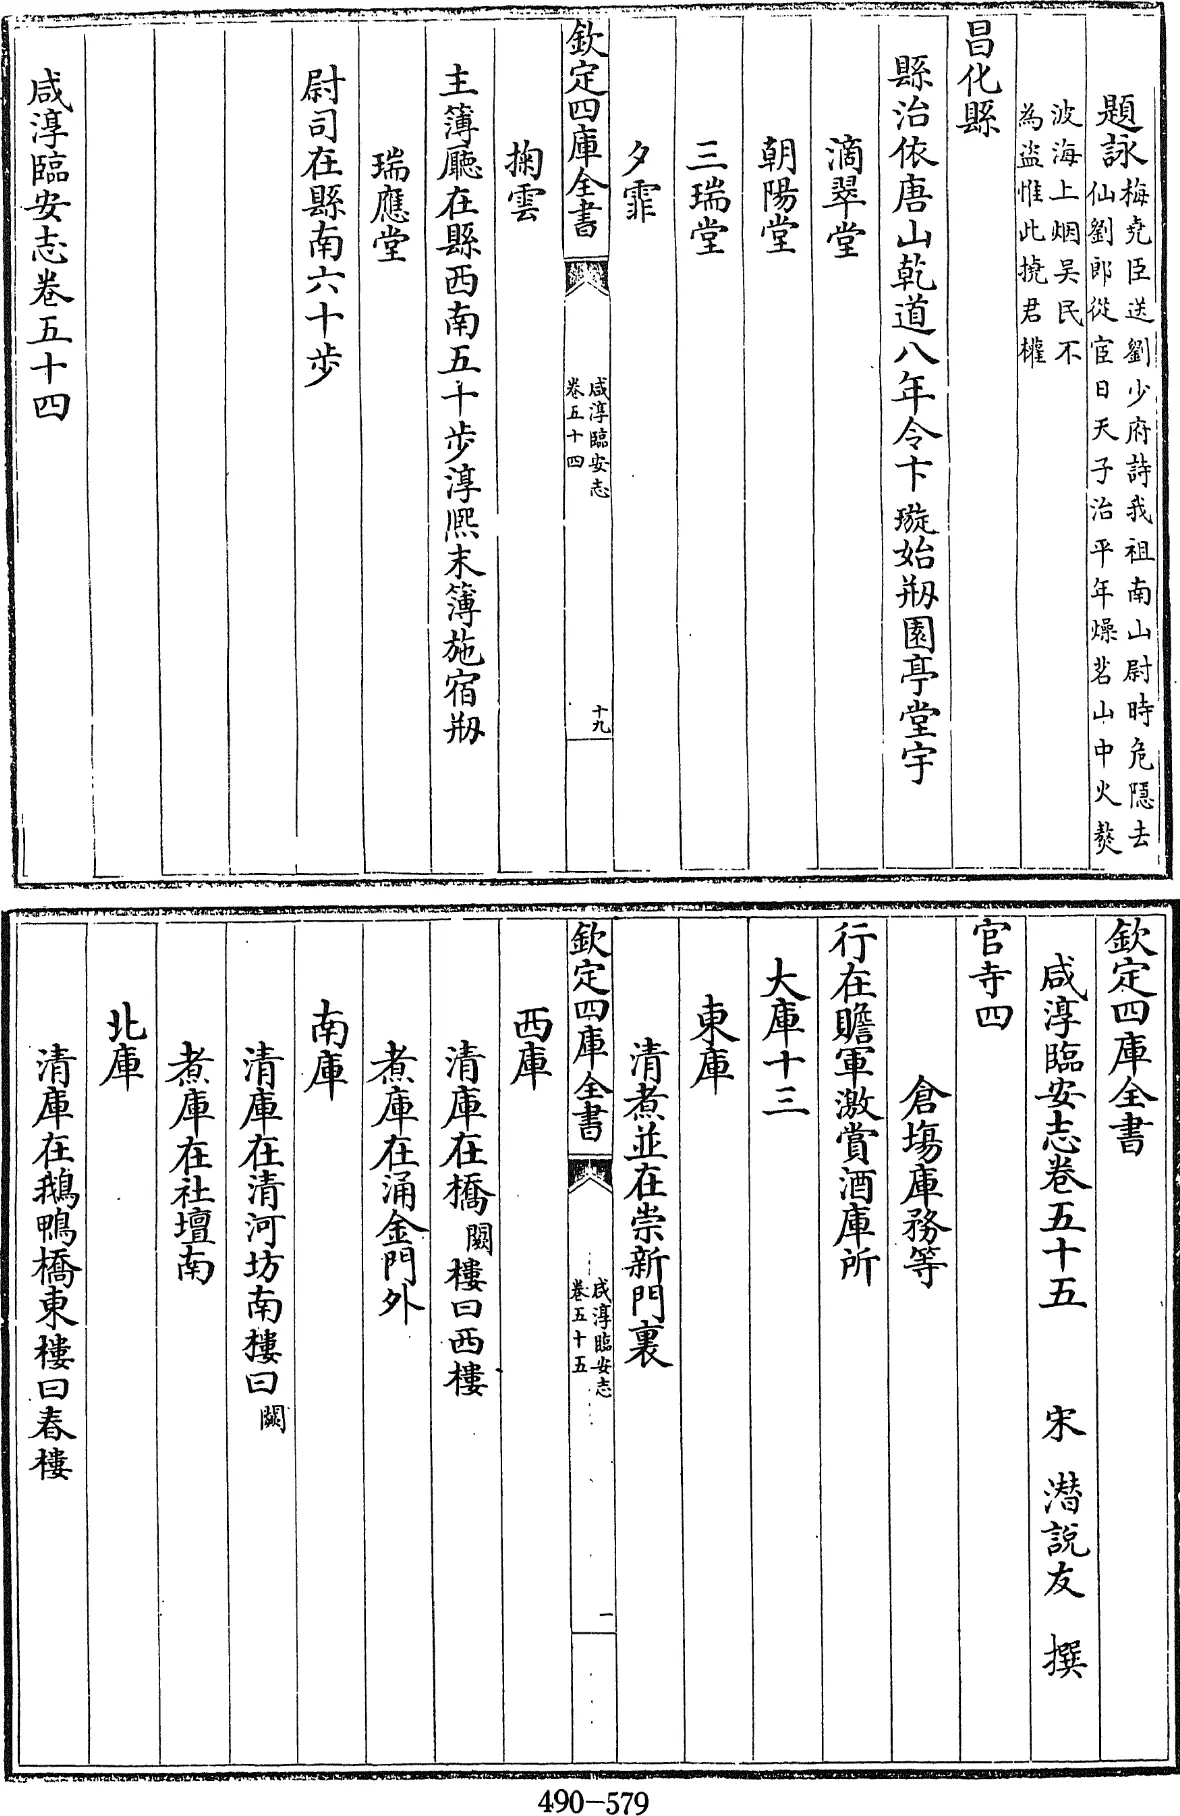 題詠梅堯臣送劉少府詩我祖南山尉時危隱去
仙劉郎從宦日天子治平年燥岩山中火熬
波海上烟吴民不
為盗惟此撓君權
昌化縣
縣治依唐山乾道八年令卞璇始剏園亭堂宇
滴翠堂
朝陽堂
三瑞堂
夕霏
欽定四庫全書
咸淳臨安志
卷五十四
十九
掬雲
主簿廳在縣西南五十步淳熙末簿施宿剏
瑞應堂
尉司在縣南六十步
咸淳臨安志卷五十四
欽定四庫全書
咸淳臨安志卷五十五 宋 潛說友 撰
官寺四
倉場庫務等
行在贍軍激賞酒庫所
大庫十三
東庫
清煮並在崇新門裏
欽定四庫全書
咸淳臨安志
卷五十五
一
西庫
清庫在橋闕樓曰西樓
煮庫在涌金門外
南庫
清庫在清河坊南樓曰闕
煮庫在社壇南
北庫
清庫在鵝鴨橋東樓曰春樓
490-579